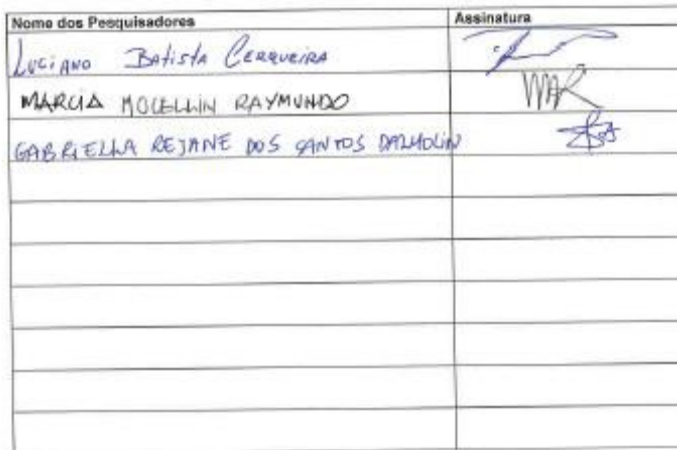 Nome dos Pesquisadores Assinatura
Luciano Batista Cerqueira
MARCIA MOCELLIN RAYMUNDO MAR
GABRIELLA REJANE DOS SANTOS DALMOLIN